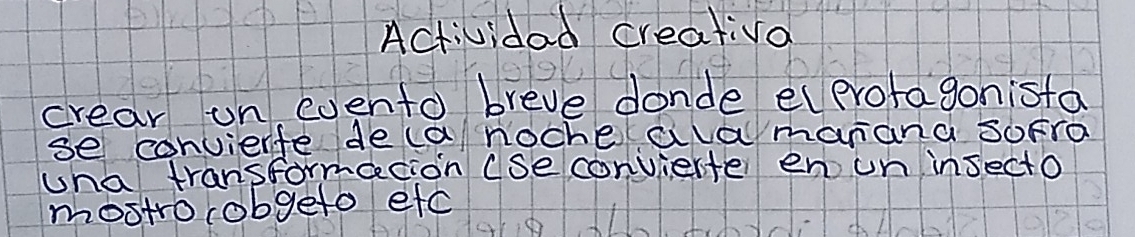 Actividad creativa
crear un cuento breve donde el protagonista
se convierte de la noche a la mañana sofra
una transformación (se convierte en un insecto
mostro, obgeto etc